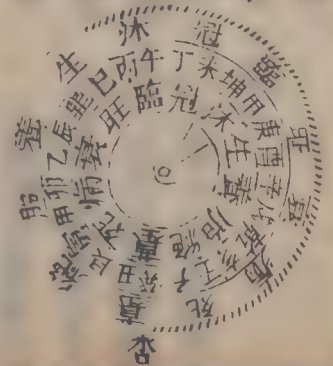 沐冠臨旺衰病死墓絕胎養生
丙午丁未坤申庚酉辛戌乾亥壬子癸丑艮寅甲卯乙辰巽巳
臨冠沐生養胎絕墓死病衰旺